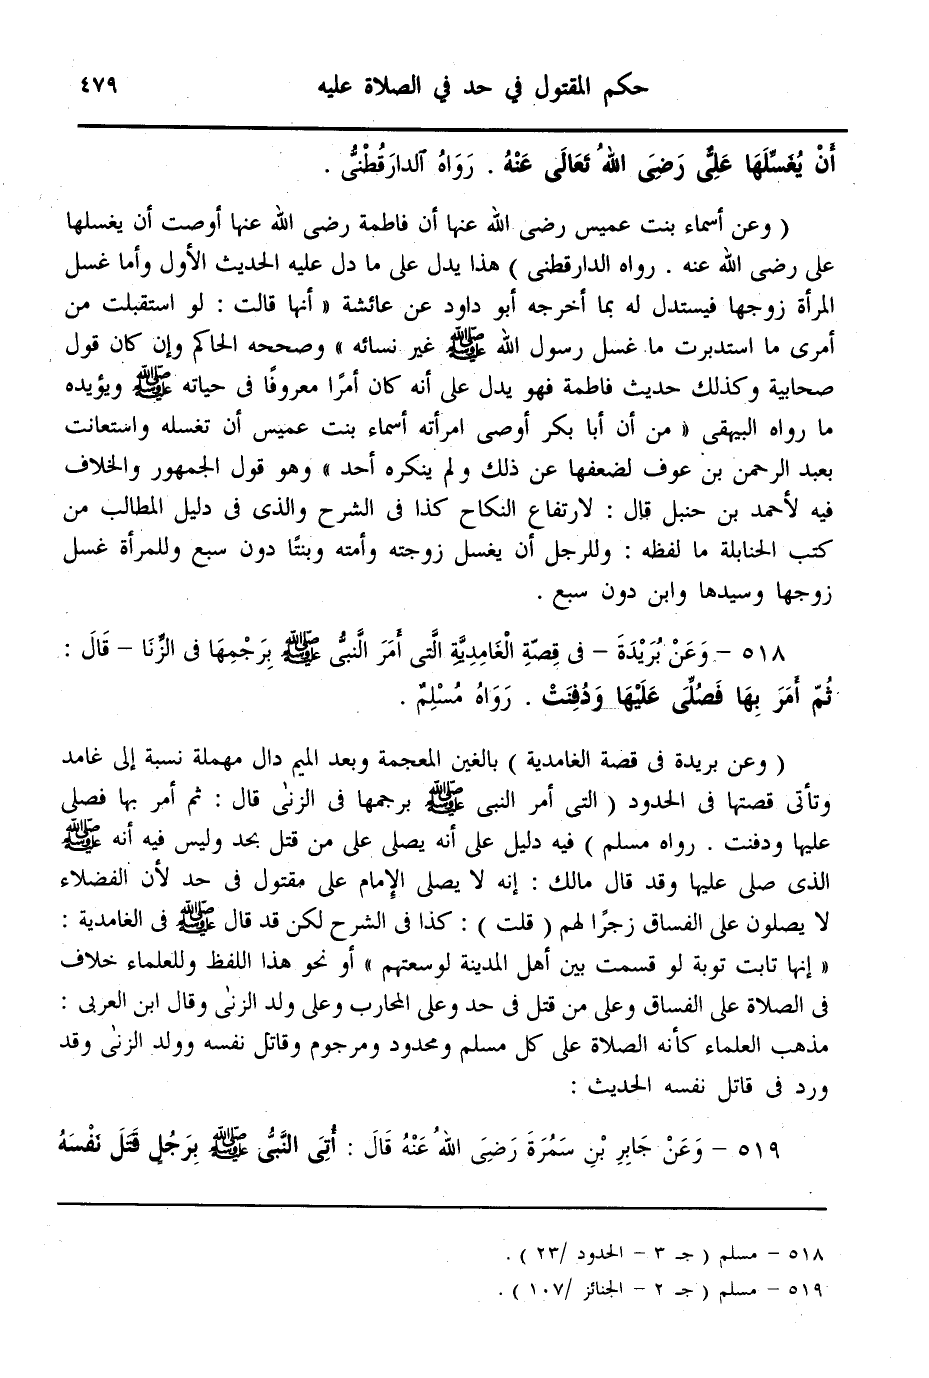 حكم المقتول في حد في الصلاة عليه ٤٧٩
أَنْ يُغَسِّلَهَا عَلِيٌّ رَضِىَ اللهُ تَعَالَى عَنْهُ . رَوَاهُ الدارَقُطْنىُّ .
( وعن أسماء بنت عميس رضى الله عنها أن فاطمة رضى الله عنها أوصت أن يغسلها
على رضى الله عنه . رواه الدارقطنى ) هذا يدل على ما دل عليه الحديث الأول وأما غسل
المرأة زوجها فيستدل له بما أخرجه أبو داود عن عائشة « أنها قالت : لو استقبلت من
أمرى ما استدبرت ما غسل رسول الله ﷺ غير نسائه » وصححه الحاكم وإن كان قول
صحابية وكذلك حديث فاطمة فهو يدل على أنه كان أمرًا معروفًا فى حياته ﷺ ويؤيده
ما رواه البيهقى « من أن أبا بكر أوصى امرأته أسماء بنت عميس أن تغسله واستعانت
بعبد الرحمن بن عوف لضعفها عن ذلك ولم ينكره أحد » وهو قول الجمهور والخلاف
فيه لأحمد بن حنبل قال : لارتفاع النكاح كذا فى الشرح والذى فى دليل المطالب من
كتب الحنابلة ما لفظه : وللرجل أن يغسل زوجته وأمته وبنتًا دون سبع وللمرأة غسل
زوجها وسيدها وابن دون سبع .
٥١٨ – وَعَنْ بُرَيْدَةَ – فى قِصّةِ الْغَامِدِيَّةِ الَّتى أَمَرَ الَّنبىُّ ﷺ بِرَجْمِهَا فى الزِّنَا – قَالَ :
ثُمّ أَمَرَ بِهَا فَصُلِّىَ عَلَيْهَا وَدُفِنَتْ . رَوَاهُ مُسْلِمٌ .
( وعن بريدة فى قصة الغامدية ) بالغين المعجمة وبعد الميم دال مهملة نسبة إلى غامد
وتأتى قصتها فى الحدود ( التى أمر النبى ﷺ برجمها فى الزنى قال : ثم أمر بها فصلى
عليها ودفنت . رواه مسلم ) فيه دليل على أنه يصلى على من قتل بحد وليس فيه أنه ﷺ
الذى صلى عليها وقد قال مالك : إنه لا يصلى الإمام على مقتول فى حد لأن الفضلاء
لا يصلون على الفساق زجرًا لهم ( قلت ) : كذا فى الشرح لكن قد قال ﷺ فى الغامدية :
« إنها تابت توبة لو قسمت بين أهل المدينة لوسعتهم » أو نحو هذا اللفظ وللعلماء خلاف
فى الصلاة على الفساق وعلى من قتل فى حد وعلى المحارب وعلى ولد الزنى وقال ابن العربى :
مذهب العلماء كأنه الصلاة على كل مسلم ومحدود ومرجوم وقاتل نفسه وولد الزنى وقد
ورد فى قاتل نفسه الحديث :
٥١٩ – وَعَنْ جَابِرِ بْنِ سَمُرَةَ رَضِىَ اللهُ عَنْهُ قَالَ : أُتِىَ النَّبىُّ ﷺ بِرَجُلٍ قَتَلَ نَفْسَهُ
٥١٨ – مسلم ( جـ ٣ – الحدود /٢٣ ) .
٥١٩ – مسلم ( جـ ٢ – الجنائز /١٠٧ ) .